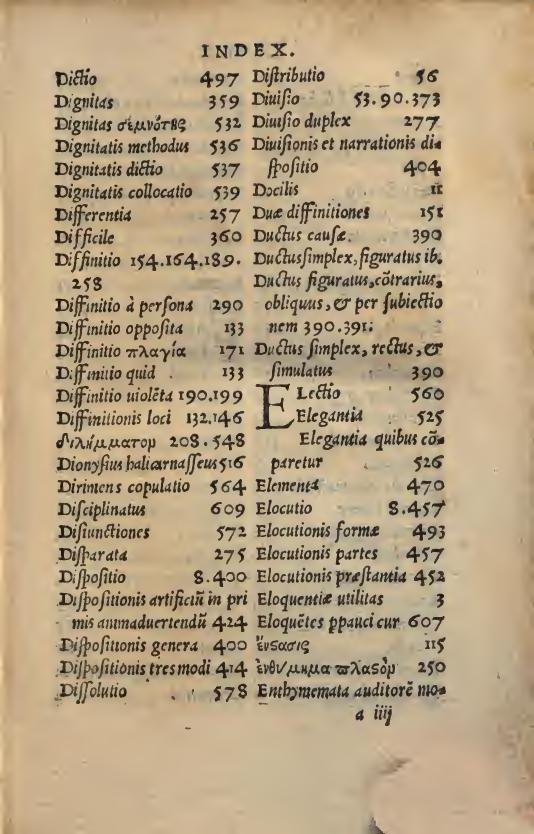 INDEX.
Dictio 497
Dignitas 359
Dignitas σεμνότης 532
Dignitatis methodus 536
Dignitatis dictio 537
Dignitatis collocatio 539
Differentia 257
Difficile 360
Diffinitio 154.164.189.
258
Diffinitio à persona 290
Diffinitio opposita 133
Diffinitio πλαγία 171
Diffinitio quid 133
Diffinitio uiolẽta 190.199
Diffinitionis loci 132.146
διλήμματορ 208.548
Dionysius halicarnasseus 516
Dirimens copulatio 564
Disciplinatus 609
Disiunctiones 572
Disparata 275
Dispositio 8.400
Dispositionis artificiũ in pri
mis animaduertendũ 424
Dispositionis genera 400
Dispositionis tres modi 414
Dissolutio 578
Distributio 56
Diuisio 53.90.373
Diuisio duplex 277
Diuisionis et narrationis di⸗
spositio 404
Docilis 11
Duæ diffinitiones 151
Ductus causæ. 390
Ductus simplex, figuratus ib.
Ductus figuratus, cõtrarius,
obliquus, & per subiectio
nem 390.391.
Ductus simplex, rectus, &
simulatus 390
ELectio 560
Elegantia 525
Elegantia quibus cõ⸗
paretur 526
Elementa 470
Elocutio 8.457
Elocutionis formæ 493
Elocutionis partes 457
Elocutionis præstantia 452
Eloquentiæ utilitas 3
Eloquẽtes ppauci cur 607
ἔνϛασις 115
ἐνθύμημα πλαϛὸρ 250
Enthymemata auditorẽ mo⸗
a iiij